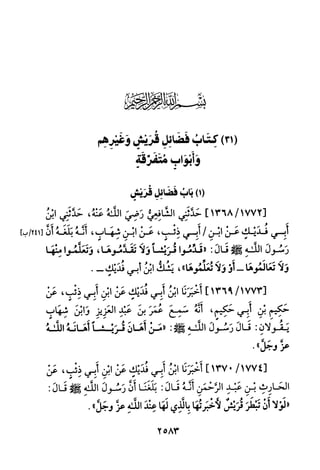 بِسْمِ اللَّهِ الرَّحْمَنِ الرَّحِيمِ
(٣١) كِتَابُ فَضَائِلِ قُرَيْشٍ وَغَيْرِهِم
وَأَبْوَابٍ مُتَفَرِّقَةٍ
(١) بَابُ فَضَائِلِ قُرَيْشٍ
[١٣٦٨/١٧٧٢] حَدَّثَنِي الشَّافِعِيُّ رَضِيَ اللَّهُ عَنْهُ، حَدَّثَنِي ابْنُ
أَبِي فُدَيْكٍ عَنْ ابْنِ / أَبِي ذِئْبٍ، عَنْ ابْنِ شِهَابٍ، أَنَّهُ بَلَغَهُ أَنَّ [٢٤١/ب]
رَسُولَ اللَّهِ ﷺ قَالَ: «قَدِّمُوا قُرَيْشًا وَلَا تَقَدَّمُوهَا، وَتَعَلَّمُوا مِنْهَا
وَلَا تَعَالَمُوهَا ـ أَوْ وَلَا تُعَلِّمُوهَا»، يَشُكُّ ابْنُ أبي فُدَيْكٍ ـ.
[١٣٦٩/١٧٧٣] أَخْبَرَنَا ابْنُ أَبِي فُدَيْكٍ عَنْ ابْنِ أَبِي ذِئْبٍ، عَنْ
حَكِيمِ بْنِ أَبِي حَكِيمٍ، أَنَّهُ سَمِعَ عُمَرَ بنَ عَبْدِ العَزِيزِ وَابْنَ شِهَابٍ
يَقُولَانِ: قَالَ رَسُولُ اللَّهِ ﷺ: «مَنْ أَهَانَ قُرَيْشًا أَهَانَهُ اللَّهُ
عزَّ وجَلَّ».
[١٣٧٠/١٧٧٤] أَخْبَرَنَا ابْنُ أَبِي فُدَيْكٍ عَنْ ابْنِ أَبِي ذِئْبٍ، عَنْ
الحَارِثِ بْنِ عَبْدِ الرَّحْمَنِ أَنَّهُ قَالَ: بَلَغَنَا أَنَّ رَسُولَ اللَّهِ ﷺ قَالَ:
«لَوْلَا أَنْ تَبْطَرَ قُرَيْشٌ لَأَخْبَرْتُهَا بِالَّذِي لَهَا عِنْدَ اللَّهِ عزَّ وجَلَّ».
٢٥٨٣